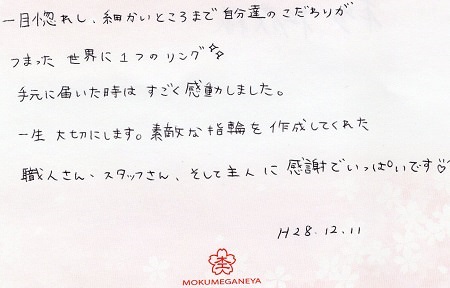 一目惚れし、細かいところまで自分達のこだわりが
つまった 世界に1つのリング✨
手元に届いた時は すごく感動しました。
一生 大切にします。素敵な指輪を作成してくれた
職人さん・スタッフさん、そして主人に感謝でいっぱいです♡
H28.12.11
MOKUMEGANEYA